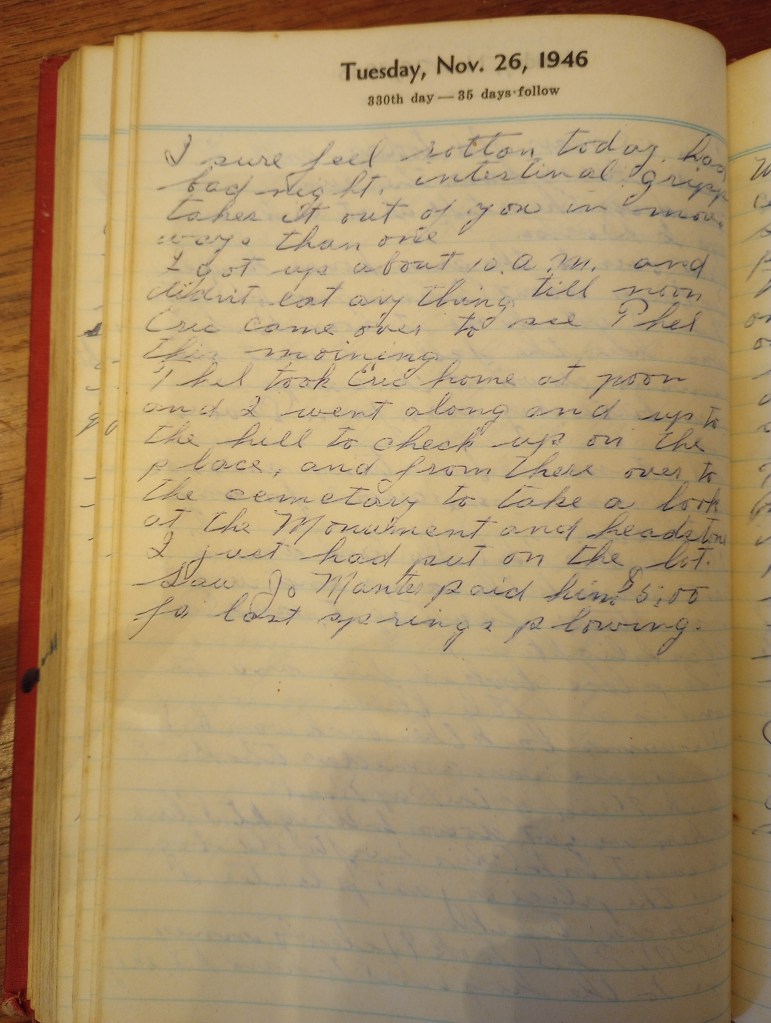 Tuesday, Nov. 26, 1946
330th day — 35 days follow
I sure feel rotton today. had
bad night. intestinal gripp
takes it out of you in more
ways than one
I got up about 10. a.m. and
didn't eat any thing till noon
Eric came over to see Phel
this moining
Phel took Eric home at noon
and I went along and up to
the hill to check up on the
place, and from there over to
the cemetary to take a look
at the Monument and headstone
I just had put on the lot.
Saw Jo paid him $5.00
fo last springs plowing.